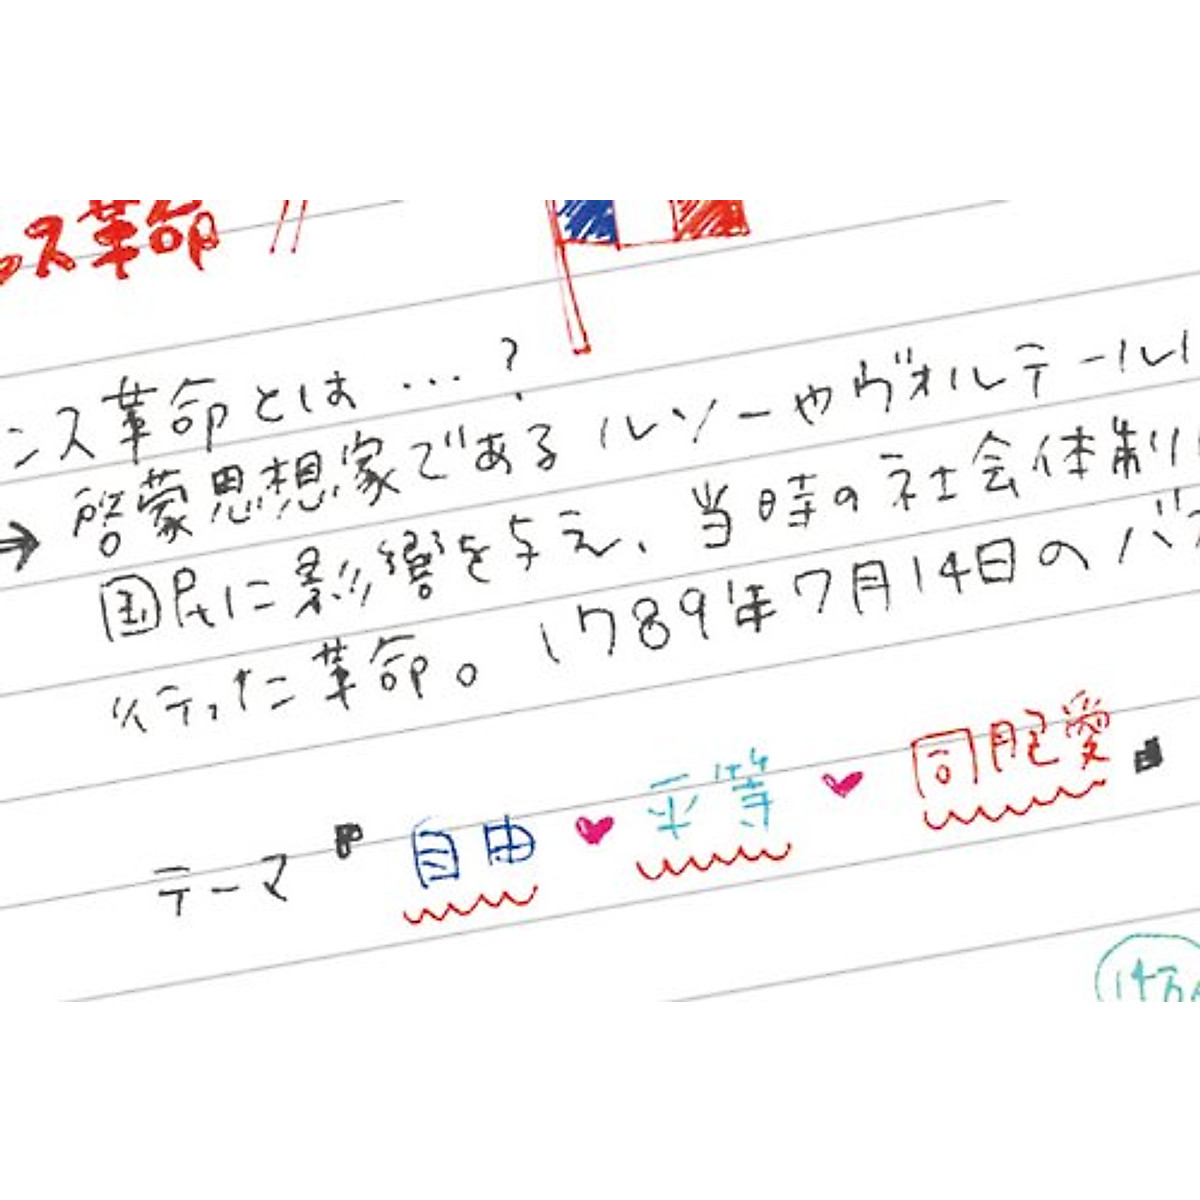 ンス革命 //
ンス革命とは…?
→ 啓蒙思想家であるルソーやヴォルテール
国民に影響を与え、当時の社会体制
行った革命。1789年7月14日のバ
テーマ『自由♥平等♥同胞愛』
14万